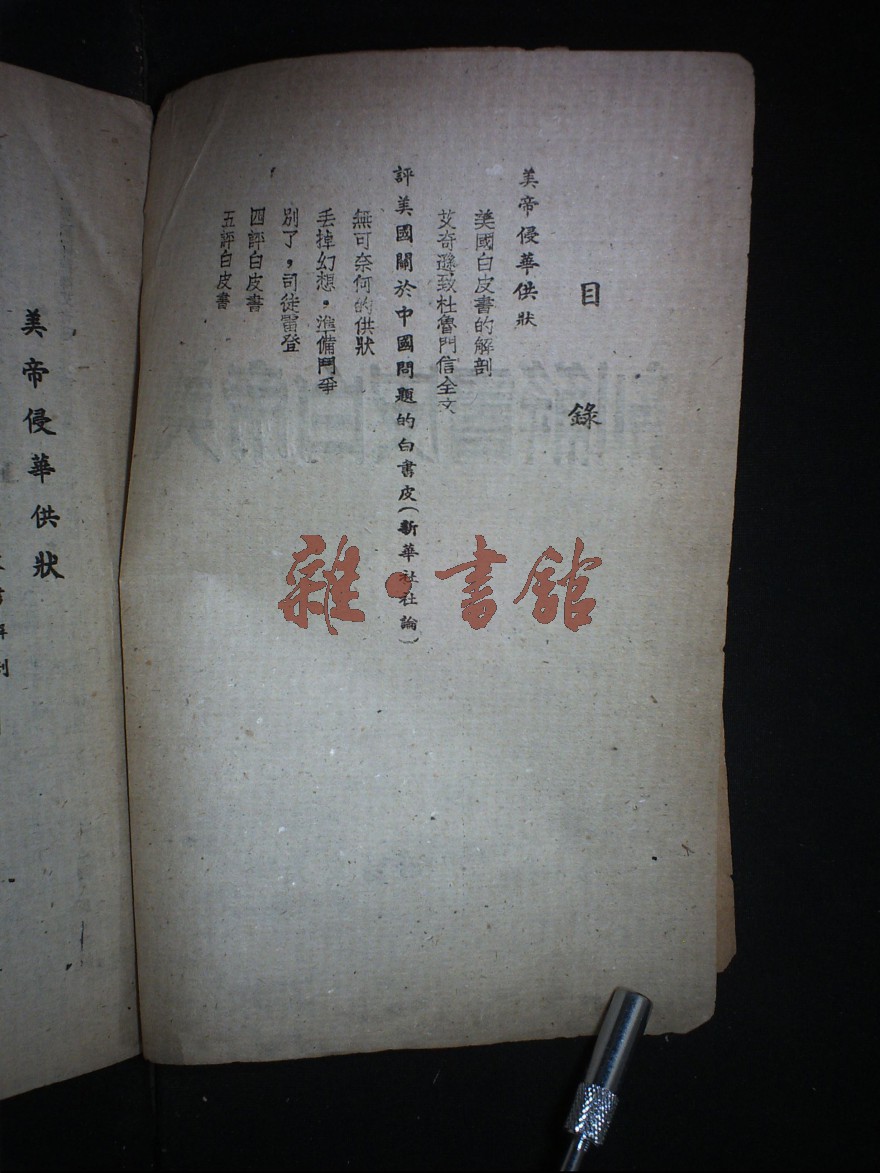 目錄
美帝侵華供狀
美國白皮書的解剖
艾奇遜致杜魯門信全文
評美國關於中國問題的白書皮(新華社社論)
無可奈何的供狀
丢掉幻想，準備鬥爭
别了，司徒雷登
四評白皮書
五評白皮書
美帝侵華供狀
雜·書館